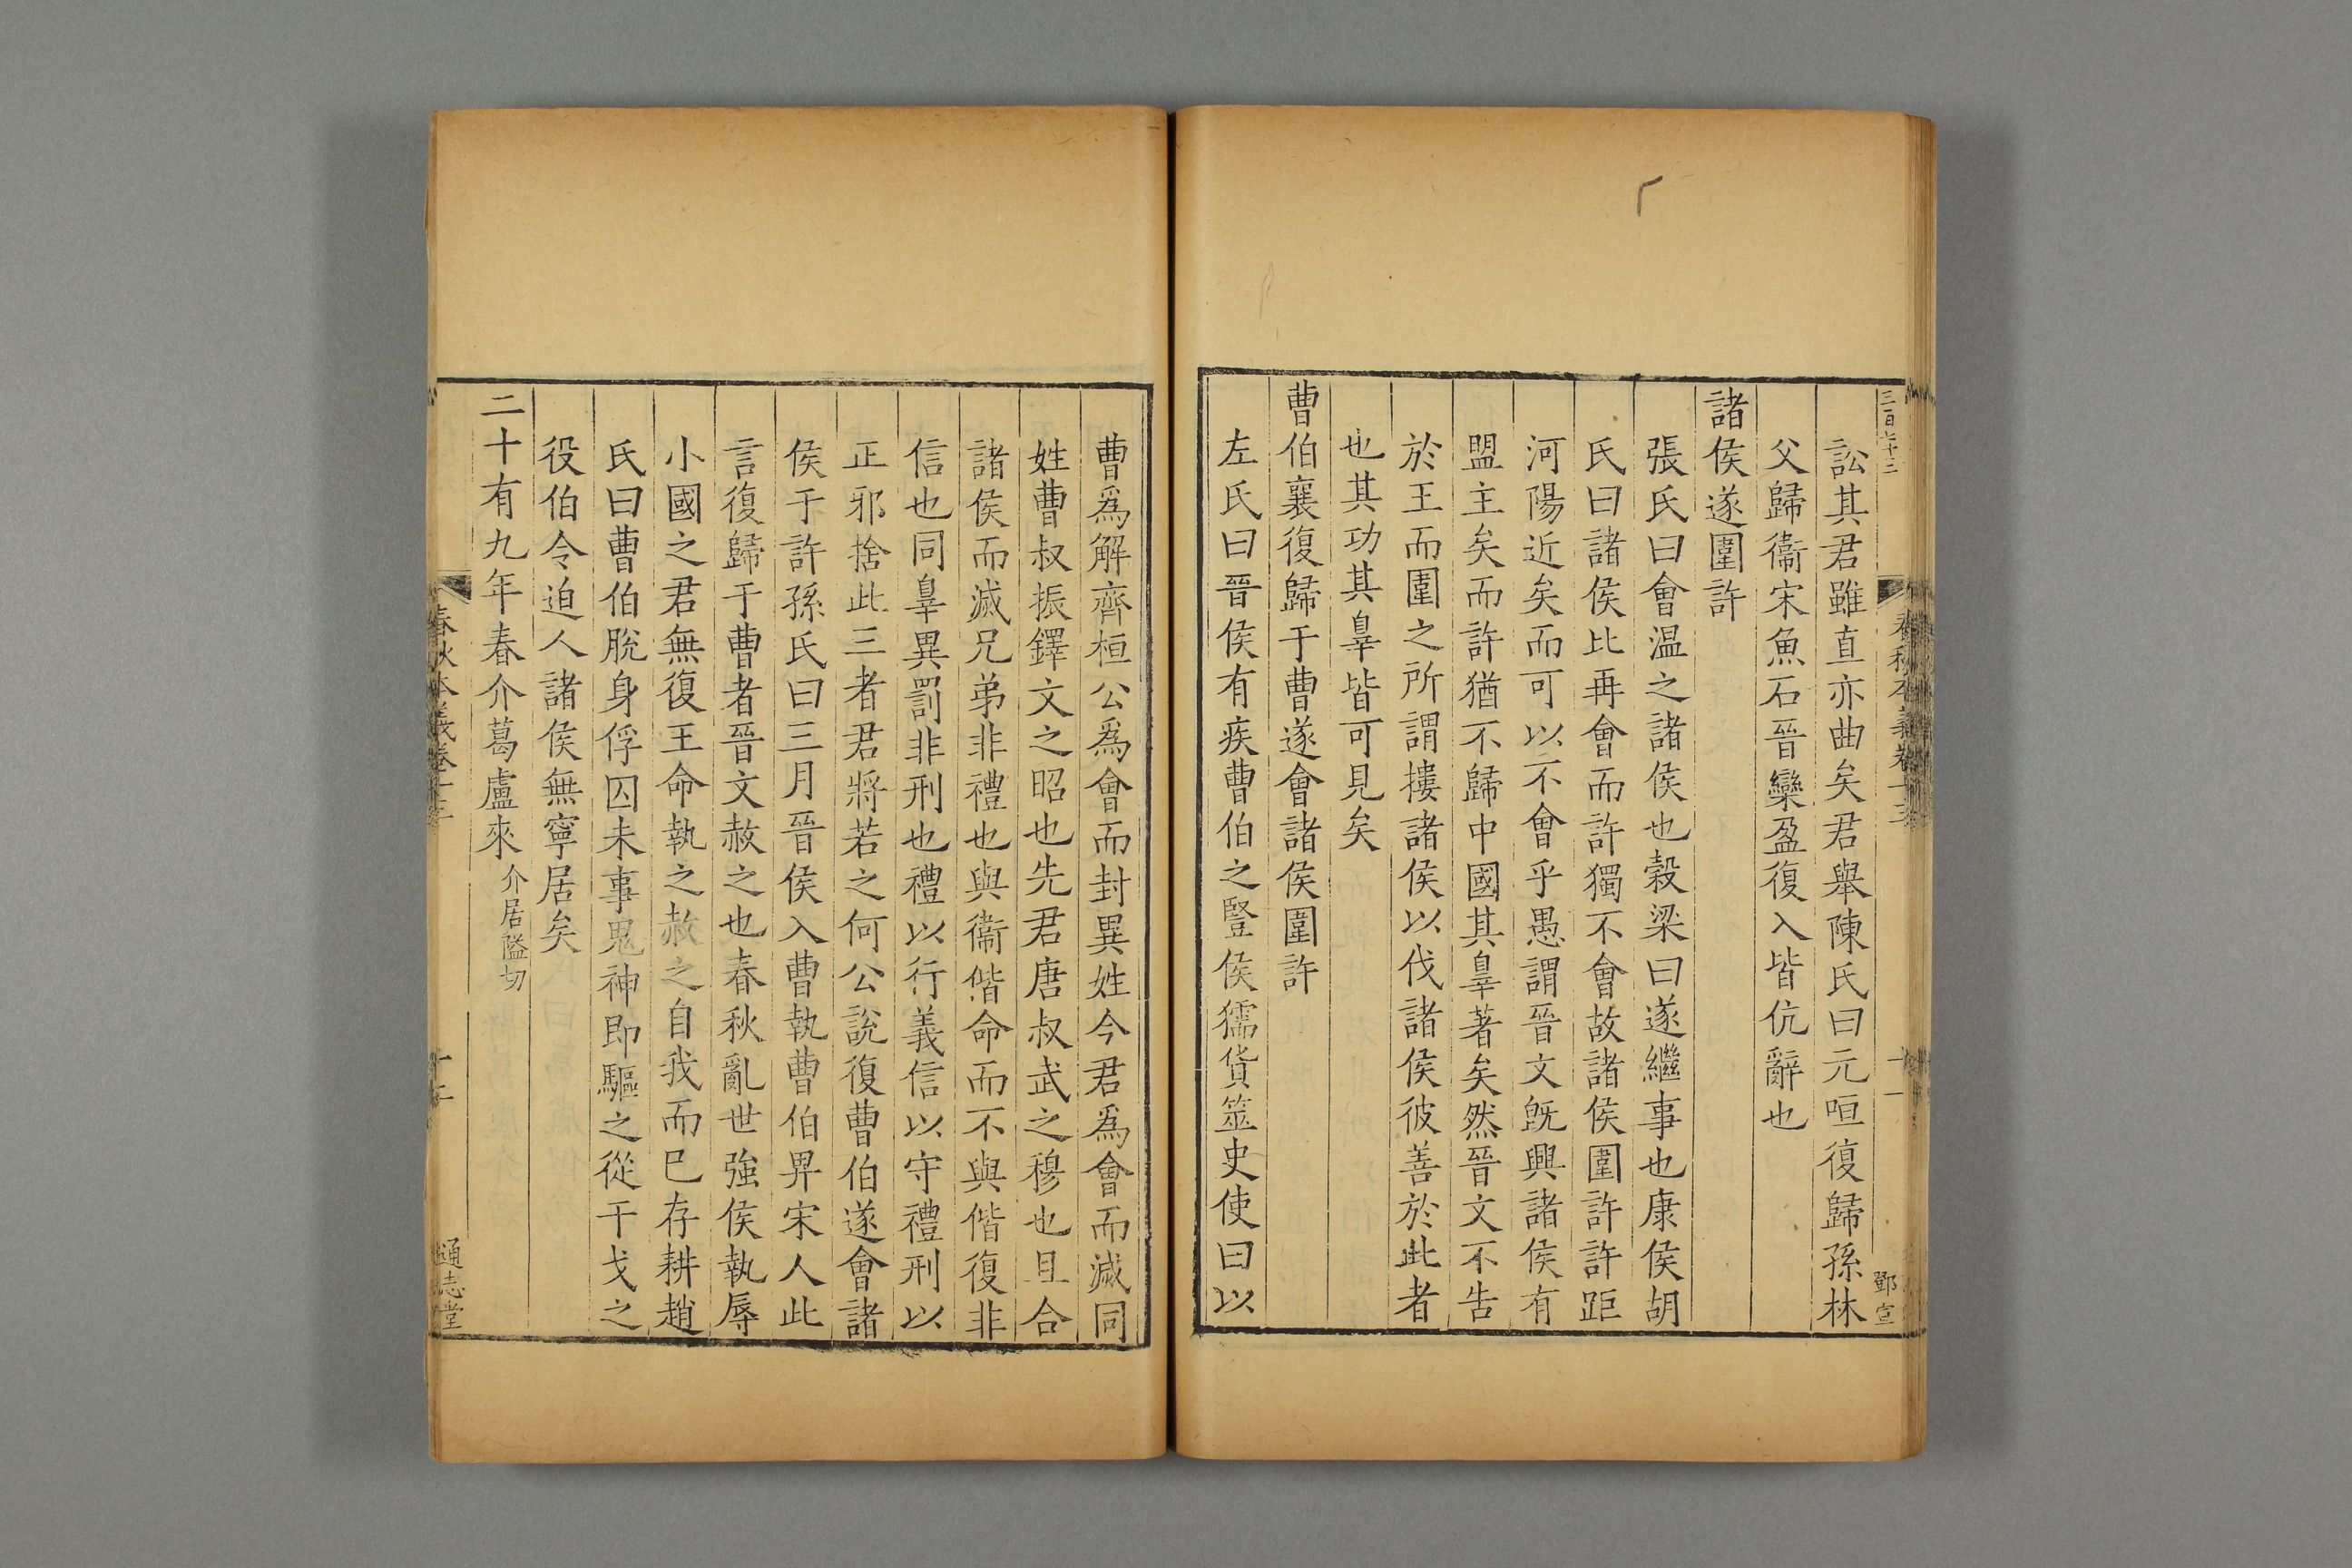 訟其君雖直亦曲矣君舉陳氏曰元咺復歸孫林
父歸衞宋魚石晉欒盈復入皆伉辭也
諸侯遂圍許
張氏曰會温之諸侯也穀梁曰遂繼事也康侯胡
氏曰諸侯比再會而許獨不會故諸侯圍許許距
河陽近矣而可以不會乎愚謂晉文旣興諸侯有
盟主矣而許猶不歸中國其辠著矣然晉文不告
於王而圍之所謂摟諸侯以伐諸侯彼善於此者
也其功其辠皆可見矣
曹伯襄復歸于曹遂會諸侯圍許
左氏曰晉侯有疾曹伯之豎侯獳貨筮史使曰以
鄧宣
曹爲解齊桓公爲會而封異姓今君爲會而滅同
姓曹叔振鐸文之昭也先君唐叔武之穆也且合
諸侯而滅兄弟非禮也與衞偕命而不與偕復非
信也同辠異罰非刑也禮以行義信以守禮刑以
正邪捨此三者君將若之何公說復曹伯遂會諸
侯于許孫氏曰三月晉侯入曹執曹伯畀宋人此
言復歸于曹者晉文赦之也春秋亂世強侯執辱
小國之君無復王命執之赦之自我而已存耕趙
氏曰曹伯脫身俘囚未事鬼神即驅之從干戈之
役伯令迫人諸侯無寧居矣
二十有九年春介葛盧來 介居隘切
春秋本義卷十三
通志堂